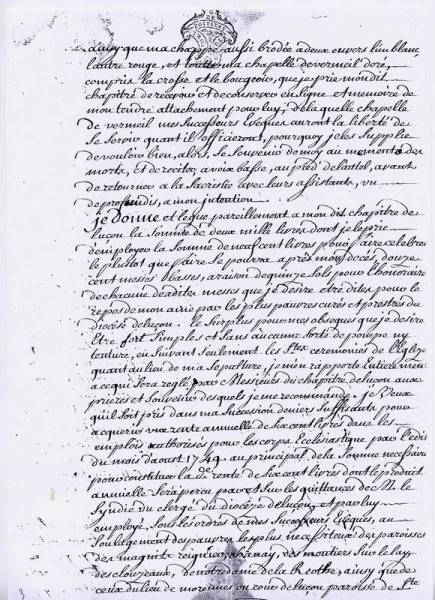 ainsy que ma chappe aussi brodée a deux envers l'un blanc
l'autre rouge, et toutte ma chapelle de vermeil doré,
compris la crosse et le bourgeoir, que je prie mondit
chapitre de recevoir et de conserver en signe et memoire de
mon tendre attachement pour luy, de la quelle chapelle
de vermeil mes Successeurs Eveques auront la liberté de
se servir quant ils officieront, pourquoy je les Supplie
de vouloir bien, alors, se Souvenir de moy au memento des
morts, et de reciter, a voix basse, au pied de l'autel, avant
de retourner a la Sacristie avec leurs assistants, un
de profundis, a mon intention.
je donne et legue pareillement a mon dit chapitre de
luçon la Somme de deux mille livres dont je le prie
d'employer la Somme de neuf cent livres pour faire celebrer
le plustot que faire se pourra après mon decés, douze
cent messes basses, a raison de quinze sols pour l'honoraire
de chacune desdites messes que je desire etre dites pour le
repos de mon ame par les plus pauvres curés et prestres du
diocése de luçon. le Surplus pour mes obseques que je desire
Etre fort Simples et Sans aucune Sorte de pompe ny
tenture, en Suivant Seulement les Stes ceremonies de l'Eglise
quant au lieu de ma Sepulture, je m'en rapporte Entierement
a ce qui Sera reglé, par Messieurs du chapitre de luçon aux
prieres et Souvenir desquels je me recommande. je Veux
qu'il Soit pris dans ma Succession deniers Suffisants pour
acquerir une rente annuelle de Six cent livres dans les
emplois authorisés pour les corps Ecclesiastique par l'edit
du mois d'aoust 1749. au principal de la Somme necessaire
pour constituer la de rente de Six cent livres dont le produit
annuelle Sera perçu par et Sur les quittances de M. le
Syndic du clergé du diocèze de luçon, et par luy
employé, Sous les ordres de mes Successeurs Evêques, au
Soulagement des pauvres les plus necessiteux des paroisses
des magnils reigniers, chanay, des moutiers Sur le lay,
des clouzeaux, de notre dame de la Reothe, ainsy que de
ceux du lieu de moreilles ou cour de luçon paroisse de Ste